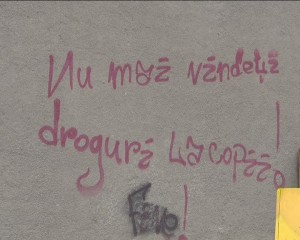 Nu mai vindeți
droguri la copii!